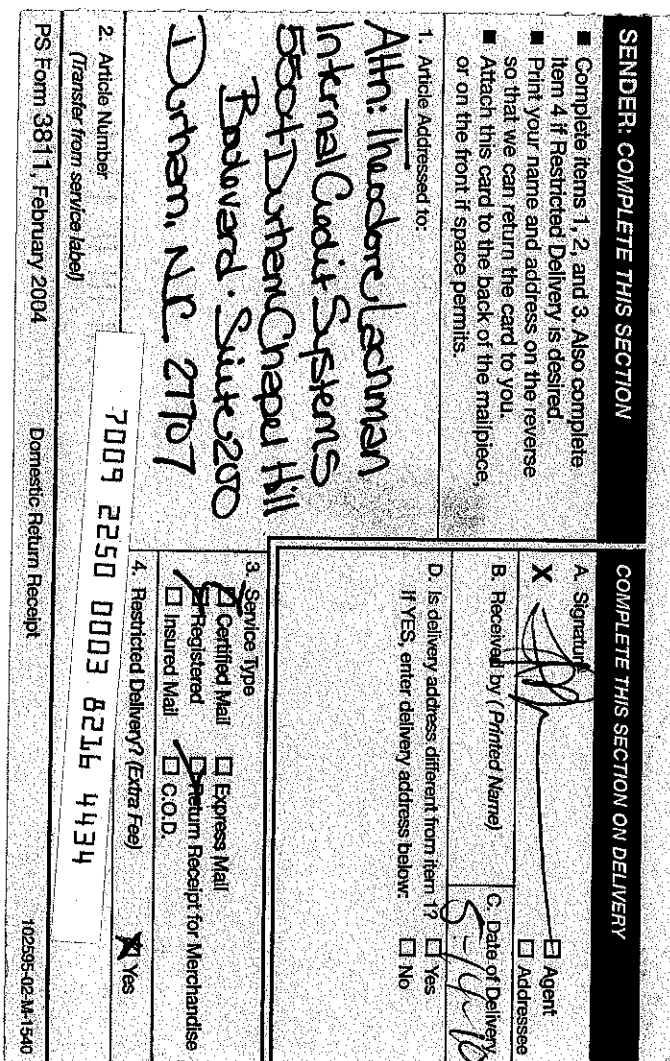 SENDER: COMPLETE THIS SECTION
■ Complete items 1, 2, and 3. Also complete
item 4 if Restricted Delivery is desired.
■ Print your name and address on the reverse
so that we can return the card to you.
■ Attach this card to the back of the mailpiece,
or on the front if space permits.
1. Article Addressed to:
Attn: Theodore Lachman
Internal Credit Systems
Durham Chapel Hill
Suite 200
Durham, NC 27707
2. Article Number
(Transfer from service label)
7009 2250 0003 8216 4434
COMPLETE THIS SECTION ON DELIVERY
A. Signature
X
☐ Agent
☐ Addressee
B. Received by (Printed Name)
C. Date of Delivery
5-14-10
D. Is delivery address different from item 1? ☐ Yes
If YES, enter delivery address below: ☐ No
3. Service Type
☐ Certified Mail ☐ Express Mail
☐ Registered ☐ Return Receipt for Merchandise
☐ Insured Mail ☐ C.O.D.
4. Restricted Delivery? (Extra Fee) ☒ Yes
PS Form 3811, February 2004
Domestic Return Receipt
102595-02-M-1540